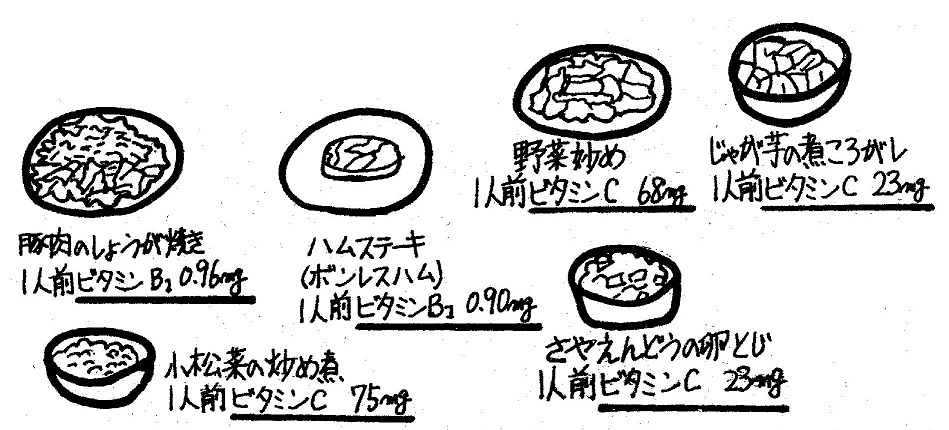 野菜炒め
1人前ビタミンC 68mg
じゃが芋の煮ころがし
1人前ビタミンC 23mg
豚肉のしょうが焼き
1人前ビタミンB₁ 0.96mg
ハムステーキ
(ボンレスハム)
1人前ビタミンB₁ 0.90mg
さやえんどうの卵とじ
1人前ビタミンC 23mg
小松菜の炒め煮
1人前ビタミンC 75mg